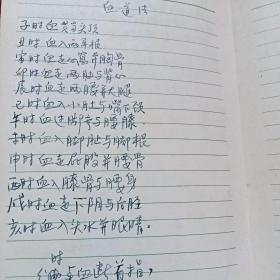 血道法
子时血 头顶
丑时血入两耳根
寅时血走 窝并胸骨
卯时血走两 背心
辰时血走两腰并大腿
巳时血入小肚与嘴下颏
午时血 脚 与腰膝.
未时血入脚肚与脚根
申时血走屁股并腰骨
酉时血入膝骨与腰身
戌时血走下阴与后腔
亥时血入头水并眼睛.
时
血 并指,